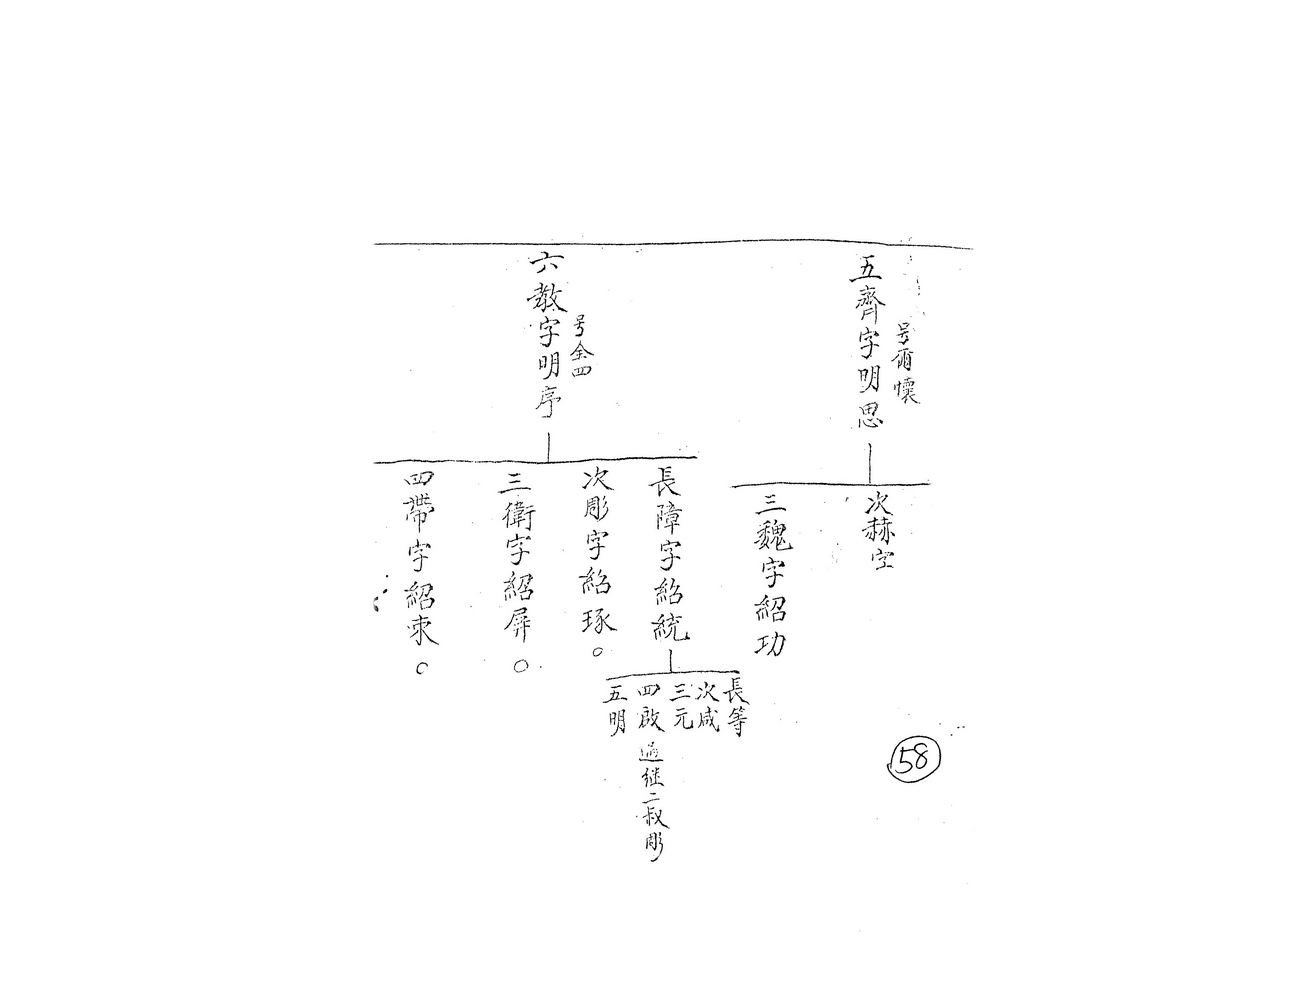 五齊字明思
号爾懷
次赫字
三魏字紹功
六教字明序
号金四
長障字紹統
次彫字紹琢○
三衛字紹屏○
四帶字紹束○
長等
次咸
三元
四啟過継二叔彫
五明
58